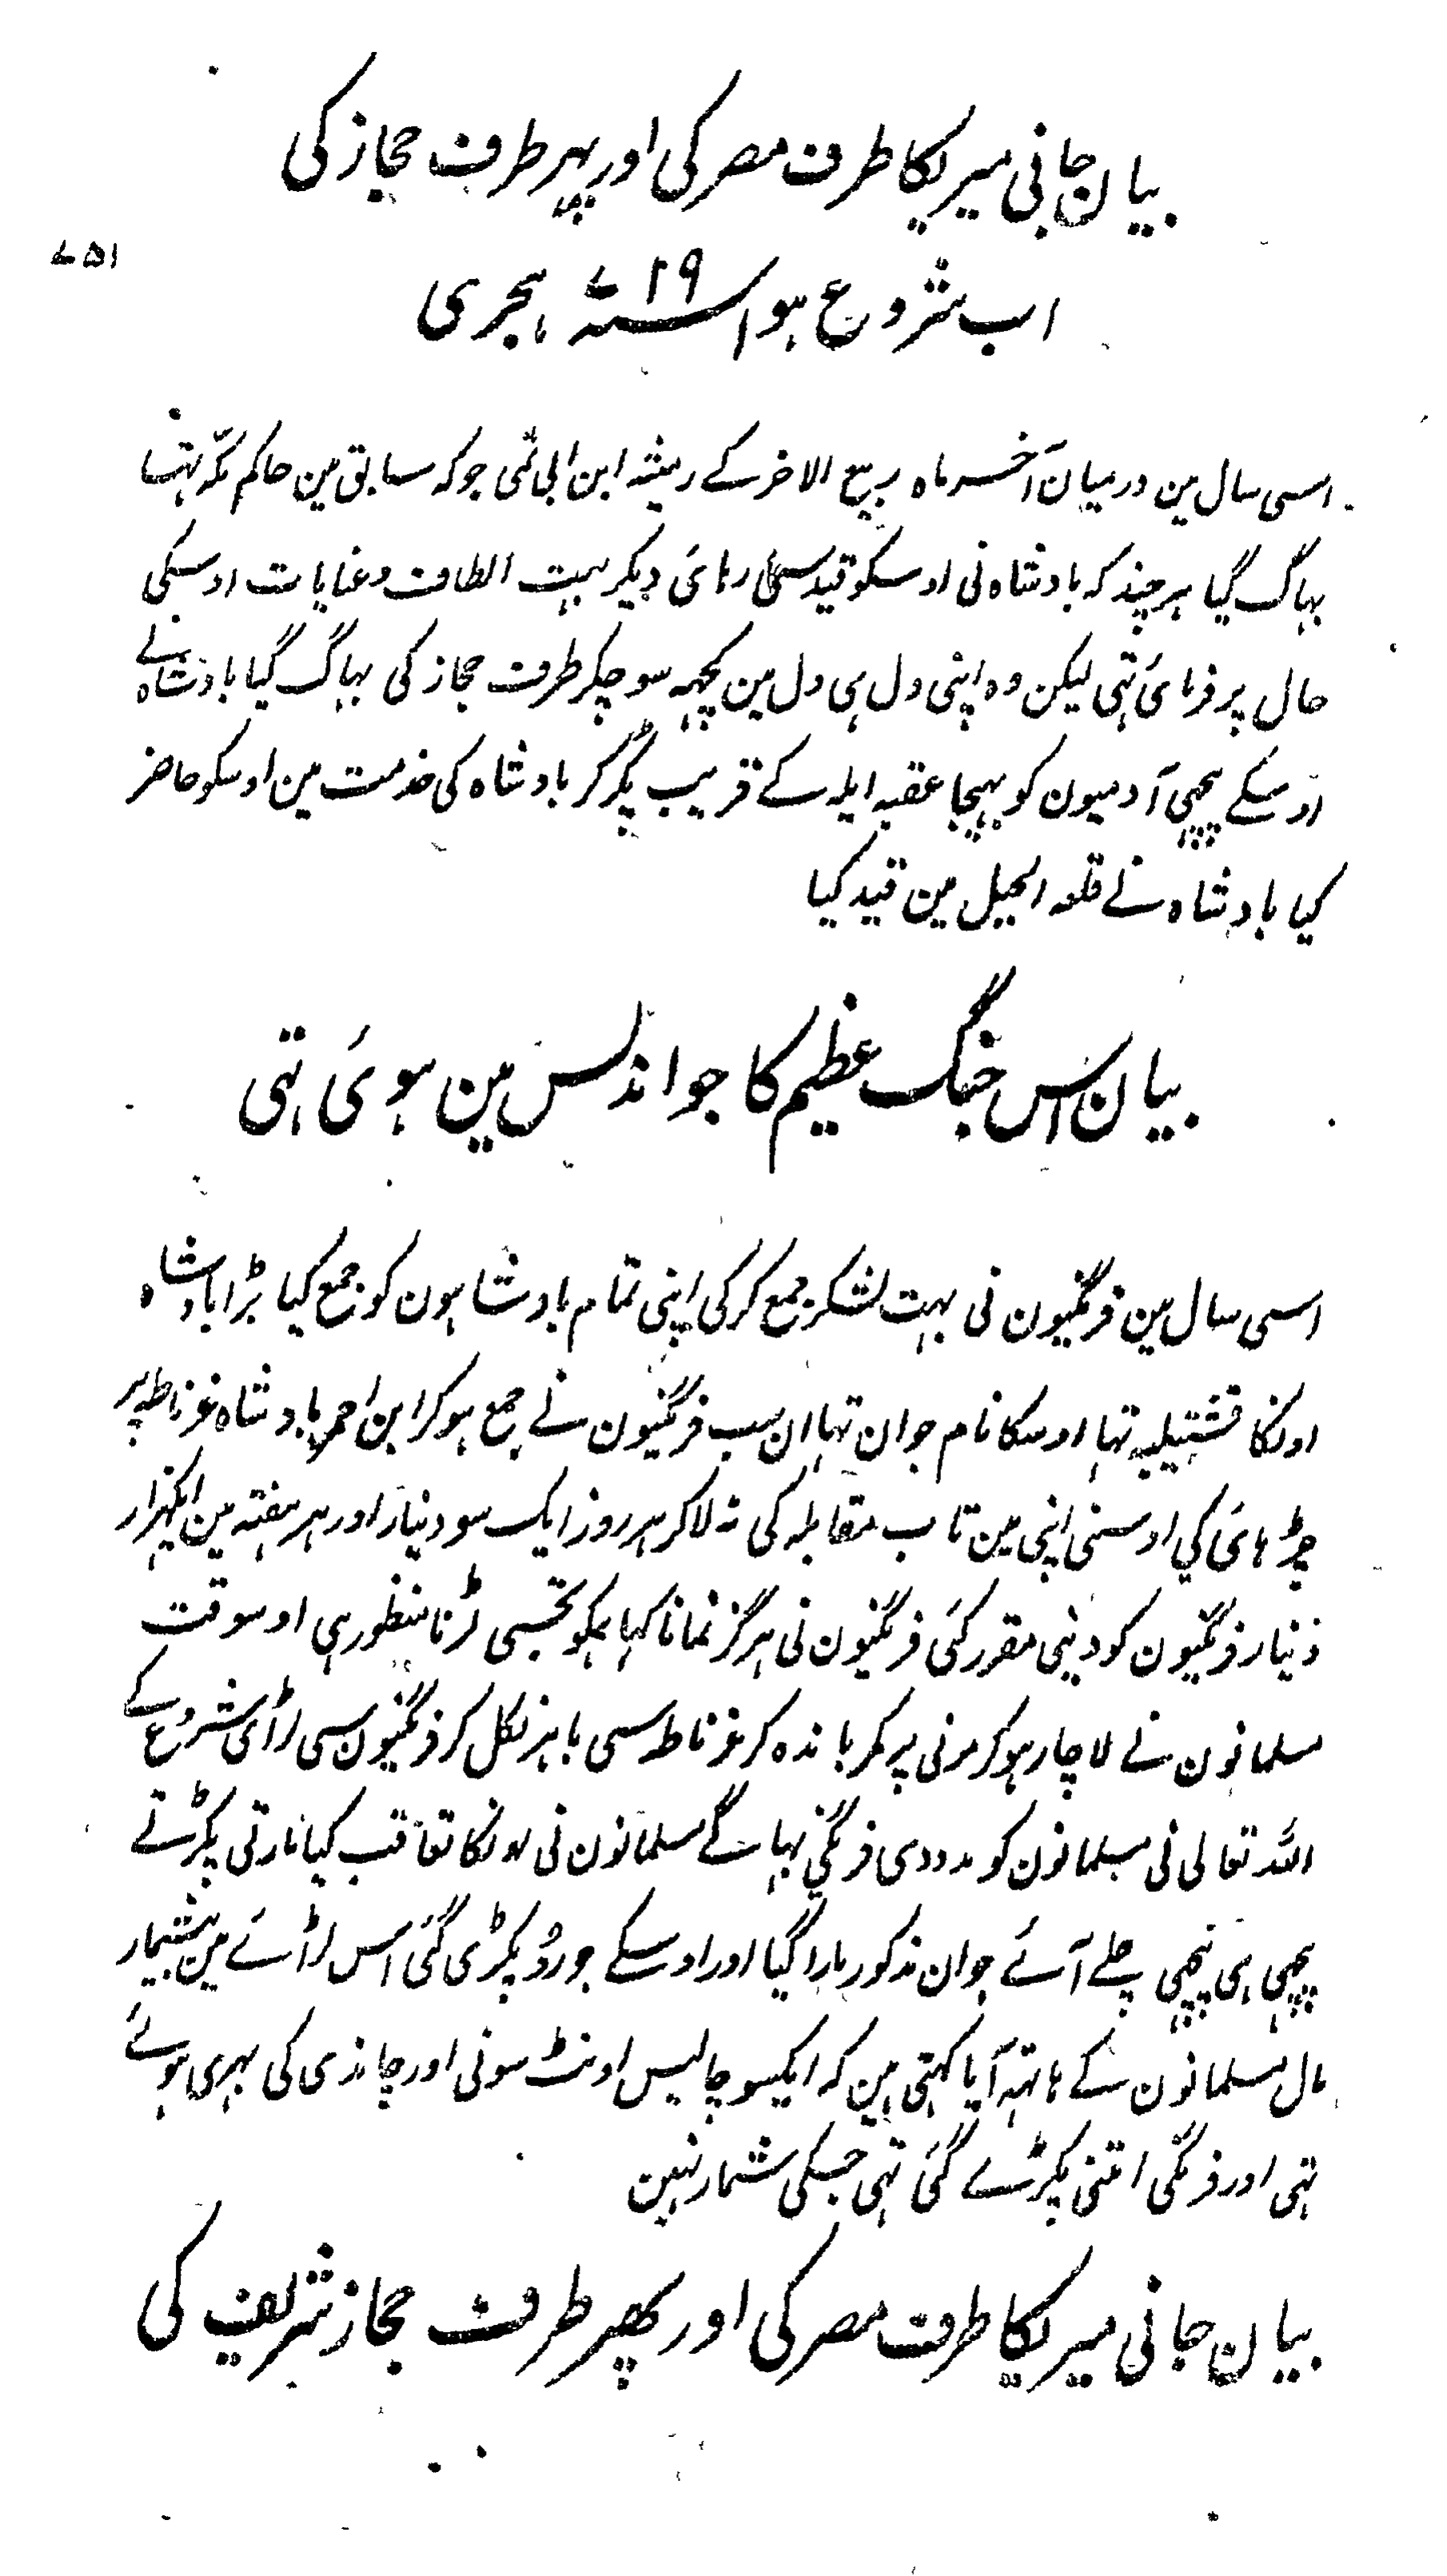 بیان جانی میریکا طرف مصر کی اور پہر طرف حجاز کی
۷۵۱
اب شروع ہوا سنہ ۷۱۹ ہجری
اسی سال مین درمیان آخر ماہ ربیع الاخر کے رمیثہ ابن ابی نمی جو کہ سابق مین حاکم مکہ تہا
بہاگ گیا ہر چند کہ بادشاہ نی اوسکو قید سی رہائی دیکر بہت الطاف وعنایات اوسکی
حال پر فرمائی تہی لیکن وہ اپنی دل ہی دل مین کچہہ سوچکر طرف حجاز کی بہاگ گیا بادشاہ نے
اوسکے پیچہی آدمیون کو بہیجا عقبہ ایلہ کے قریب پکڑ کر بادشاہ کی خدمت مین اوسکو حاضر
کیا بادشاہ نے قلعہ الجبل مین قید کیا
بیان اس جنگ عظیم کا جو اندلس مین ہوئی تہی
اسی سال مین فرنگیون نی بہت لشکر جمع کر کی اپنی تمام بادشاہون کو جمع کیا بڑا بادشاہ
اونکا قشتیلیہ تہا اوسکا نام جوان تہا ان سب فرنگیون نے جمع ہو کر ابن احمر بادشاہ غرناطہ پر
چڑہائی کی اوسنی اپنی مین تاب مقابلہ کی نہ لاکر ہر روز ایک سو دینار اور ہر ہفتہ مین ایکہزار
دینار فرنگیون کو دینی مقرر کئی فرنگیون نی ہرگز نمانا کہا ہمکو تجہسی لڑنا منظور ہی اوسوقت
مسلمانون نے لاچار ہو کر مرنی پر کمر باندہ کر غرناطہ سی باہر نکل کر فرنگیون سی لڑائی شروع کے
اللہ تعالی نی مسلمانون کو مدد دی فرنگی بہاگے مسلمانون نی اونکا تعاقب کیا مارتی پکڑتے
پیچہی ہی پیچہی چلے آئے جوان مذکور مارا گیا اور اوسکے جورو پکڑی گئی اس لڑائے مین بیشمار
مال مسلمانون کے ہاتہہ آیا کہتی ہین کہ ایکسو چالیس اونٹ سونی اور چاندی کی بہری ہوئے
تہی اور فرنگی اتنی پکڑے گئی تہی جسکی شمار نہین
بیان جانی میریکا طرف مصر کی اور پھر طرف حجاز شریف کی